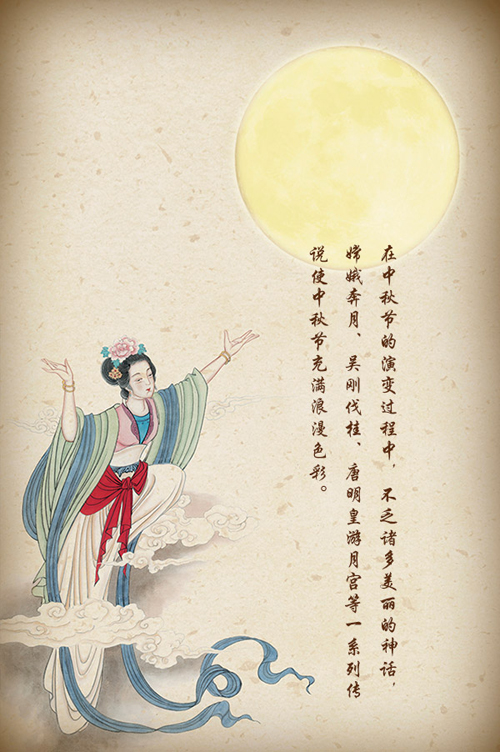 在中秋节的演变过程中，不乏诸多美丽的神话，
嫦娥奔月、吴刚伐桂、唐明皇游月宫等一系列传
说使中秋节充满浪漫色彩。